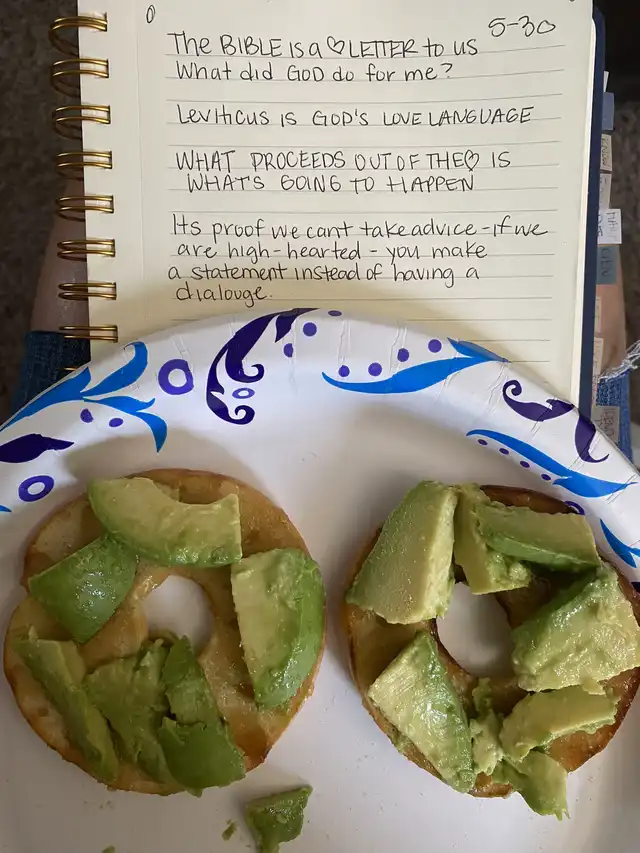 5-30
The BIBLE is a ♡ LETTER to us
What did GOD do for me?
Leviticus is GOD'S LOVE LANGUAGE
WHAT PROCEEDS OUT OF THE ♡ IS
WHAT'S GOING TO HAPPEN
Its proof we cant take advice - if we
are high-hearted - you make
a statement instead of having a
dialouge.